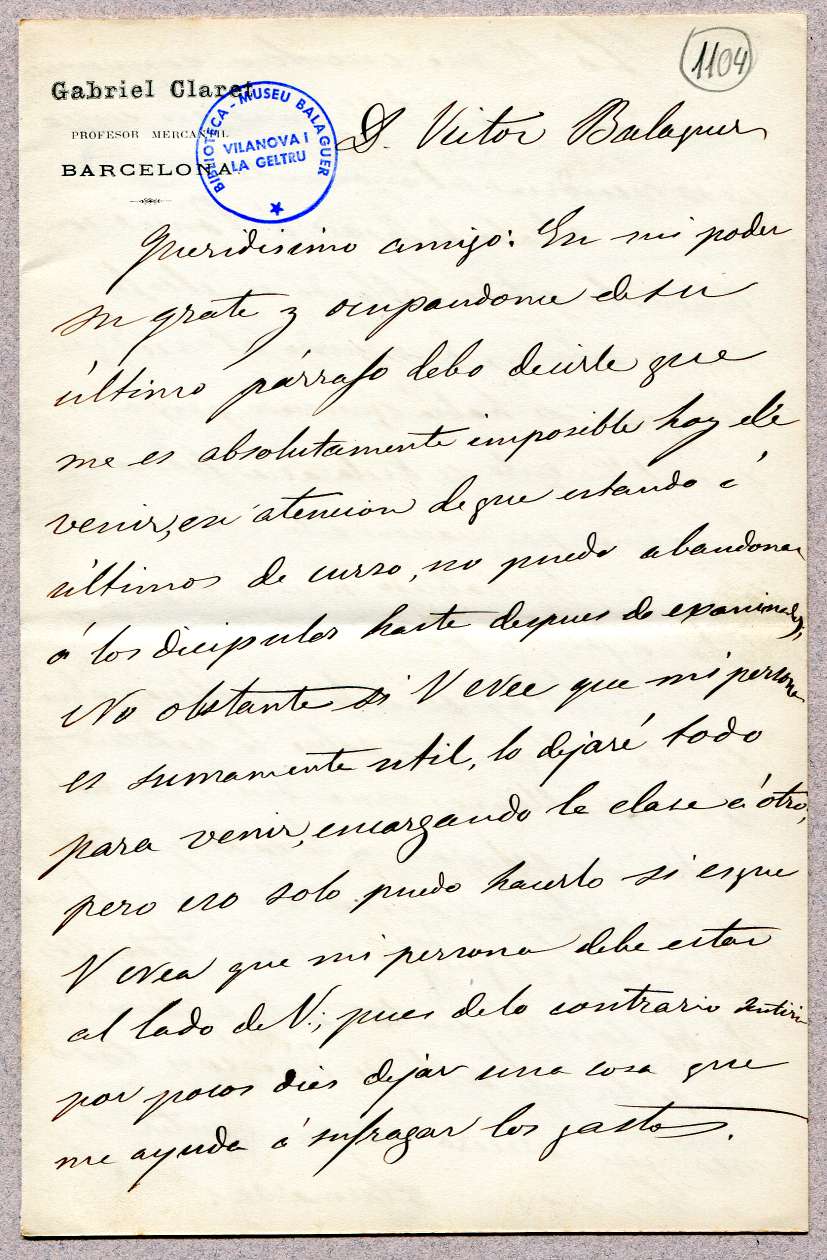 1104
Gabriel Claret
PROFESOR MERCANTIL
BARCELONA
BIBLIOTECA - MUSEU BALAGUER
VILANOVA I
LA GELTRU
D. Victor Balaguer
Queridisimo amigo: En mi poder
su grata y ocupandome de su
último párrafo debo decirle que
me es absolutamente imposible hoy el
venir, en atencion de que estando á
últimos de curso, no puedo abandonar
á los dicipulos hasta despues de examinados,
No obstante si V cree que mi persona
es sumamente util, lo dejaré todo
para venir, encargando la clase á otro,
pero eso solo puedo hacerlo si es que
V crea que mi persona debe estar
al lado de V.; pues de lo contrario sentiria
por pocos dias dejar una cosa que
me ayuda á sufragar los gastos.